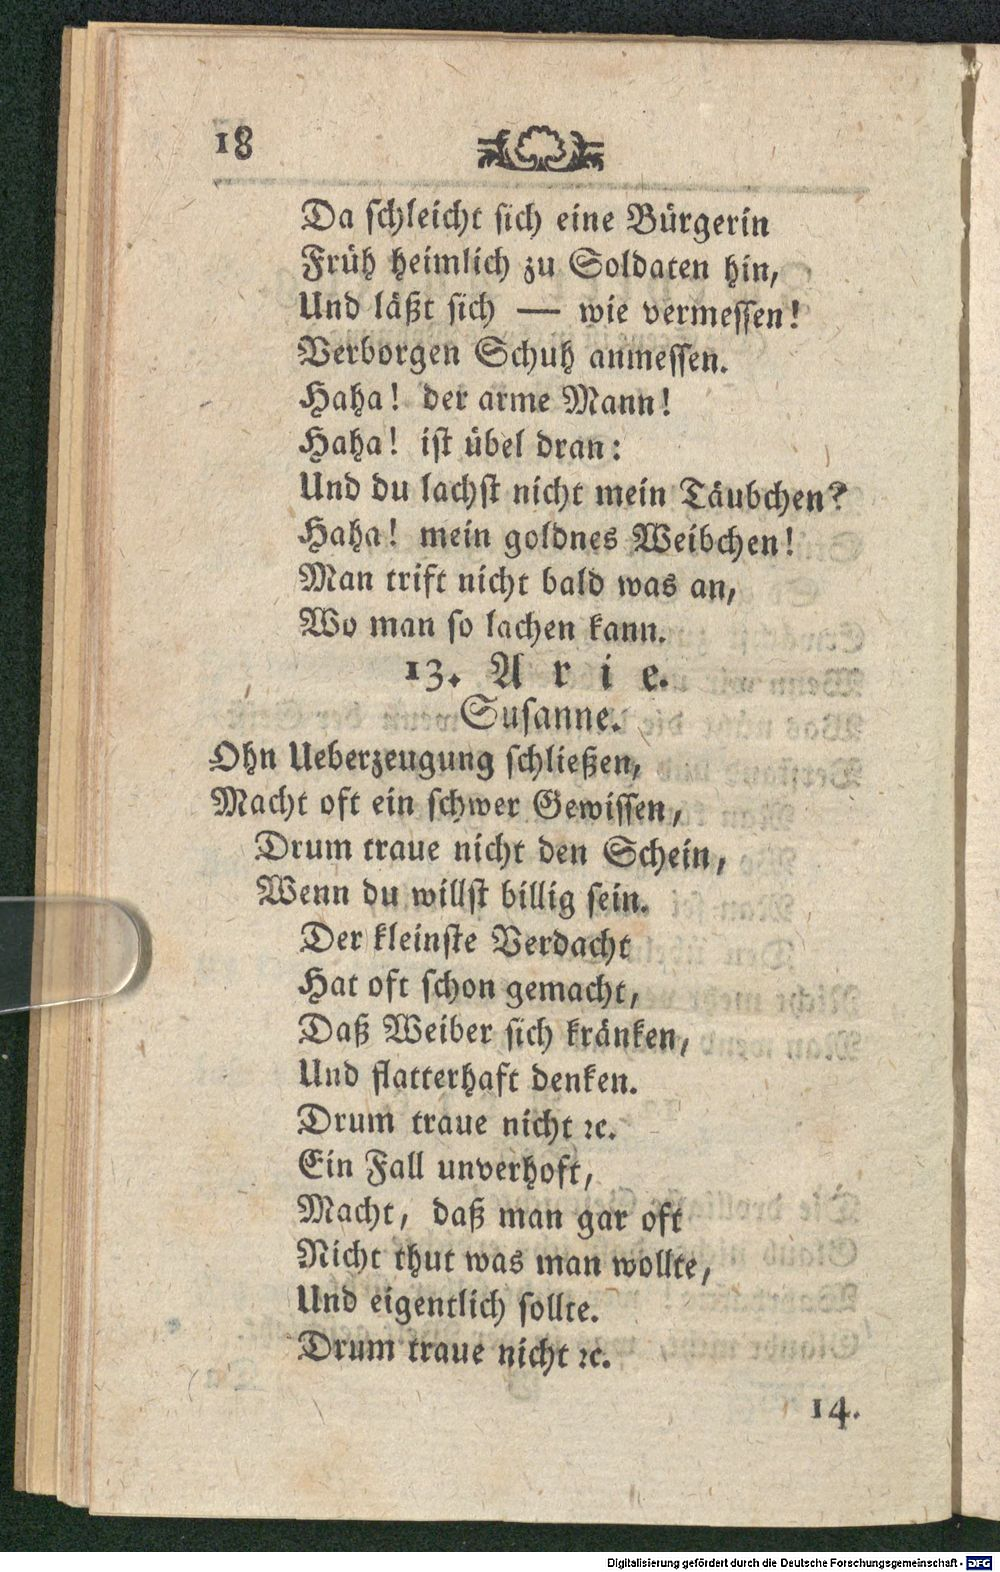 18
Da schleicht sich eine Bürgerin
Früh heimlich zu Soldaten hin,
Und läßt sich — wie vermessen!
Verborgen Schuh anmessen.
Haha! der arme Mann!
Haha! ist übel dran:
Und du lachst nicht mein Täubchen?
Haha! mein goldnes Weibchen!
Man trift nicht bald was an,
Wo man so lachen kann.
13. Arie.
Susanne.
Ohn Ueberzeugung schließen,
Macht oft ein schwer Gewissen,
Drum traue nicht den Schein,
Wenn du willst billig sein.
Der kleinste Verdacht
Hat oft schon gemacht,
Daß Weiber sich kränken,
Und flatterhaft denken.
Drum traue nicht ꝛc.
Ein Fall unverhoft,
Macht, daß man gar oft
Nicht thut was man wollte,
Und eigentlich sollte.
Drum traue nicht ꝛc.
14.
Digitalisierung gefördert durch die Deutsche Forschungsgemeinschaft - DFG